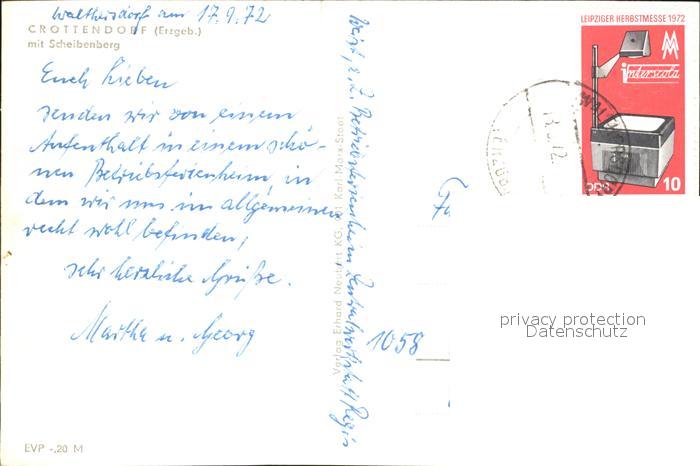 Walthersdorf am 17.9.72
CROTTENDORF (Erzgeb.)
mit Scheibenberg
Euch Lieben
senden wir von einem
Aufenthalt in einem schö-
nen Betriebsferienheim, in
dem wir uns im allgemeinen
recht wohl befinden,
sehr herzliche Grüße.
Martha u. Georg
EVP -,20 M
Verlag Erhard Neubert KG, 901 Karl-Marx-Stadt
z. Z. Betriebsferienheim Zentralwerkstatt Regis
LEIPZIGER HERBSTMESSE 1972
MM
interscola
DDR 10
1058
privacy protection
Datenschutz